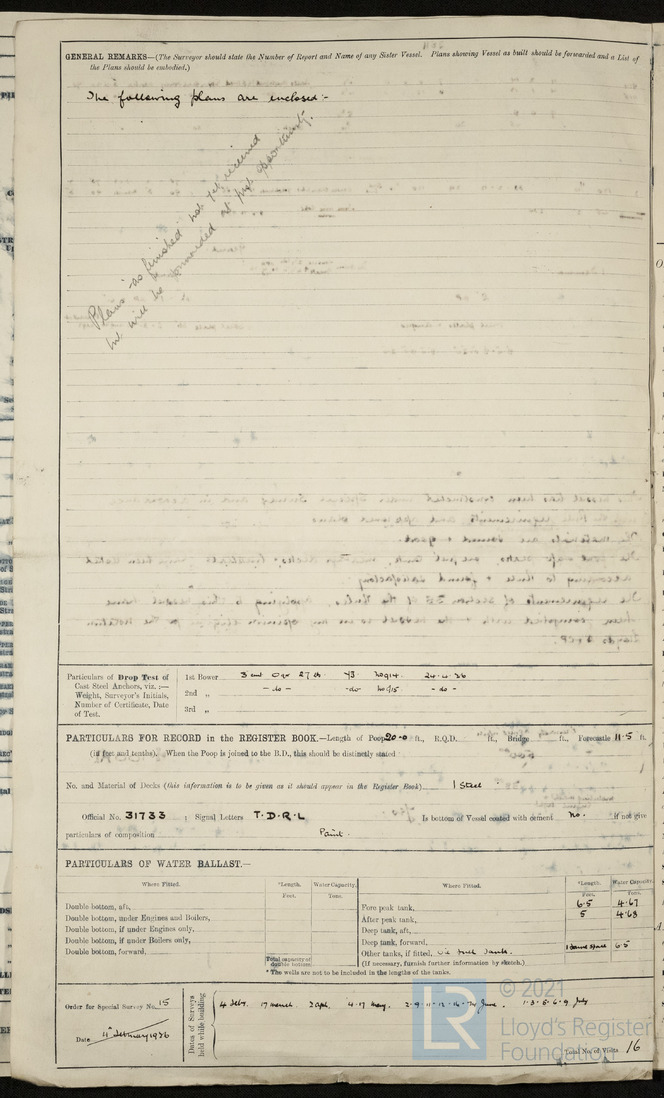 GENERAL REMARKS—(The Surveyor should state the Number of Report and Name of any Sister Vessel. Plans showing Vessel as built should be forwarded and a List of
the Plans should be embodied.)
The following plans are enclosed:-
Plans "as finished" not yet received
but will be forwarded at first opportunity.
Particulars of Drop Test of
Cast Steel Anchors, viz. :—
Weight, Surveyor's Initials,
Number of Certificate, Date
of Test.
1st Bower 3 cwt 0 qr 27 lb No 914 24.4.36
2nd „ - do - -do- No 915 - do -
3rd „
PARTICULARS FOR RECORD in the REGISTER BOOK.—Length of Poop 20.0 ft., R.Q.D. ft., Bridge ft., Forecastle 11.5 ft.
(in feet and tenths). When the Poop is joined to the B.D., this should be distinctly stated
No. and Material of Decks (this information is to be given as it should appear in the Register Book) 1 Steel
Official No. 31733 ; Signal Letters T.D.R.L Is bottom of Vessel coated with cement no. if not give
particulars of composition Paint.
PARTICULARS OF WATER BALLAST.—
Where Fitted. *Length. Water Capacity. Where Fitted. *Length. Water Capacity.
Feet. Tons. Feet. Tons.
Double bottom, aft, Fore peak tank, 6.5 4.67
Double bottom, under Engines and Boilers, After peak tank, 5 4.68
Double bottom, if under Engines only, Deep tank, aft,
Double bottom, if under Boilers only, Deep tank, forward,
Double bottom, forward, Other tanks, if fitted, tanks. 1 frame space 6.5
Total capacity of double bottom (If necessary, furnish further information by sketch.)
* The wells are not to be included in the lengths of the tanks.
Order for Special Survey No. 15
Date 11th February 1936
Dates of Surveys held while building
4 Febr. 17 March. 2 apl. 4.17 May. 2.9.11.12.16.24 June. 1.3.5.6.9. July
Total No. of Visits 16
© 2021
LR
Lloyd's Register
Foundation